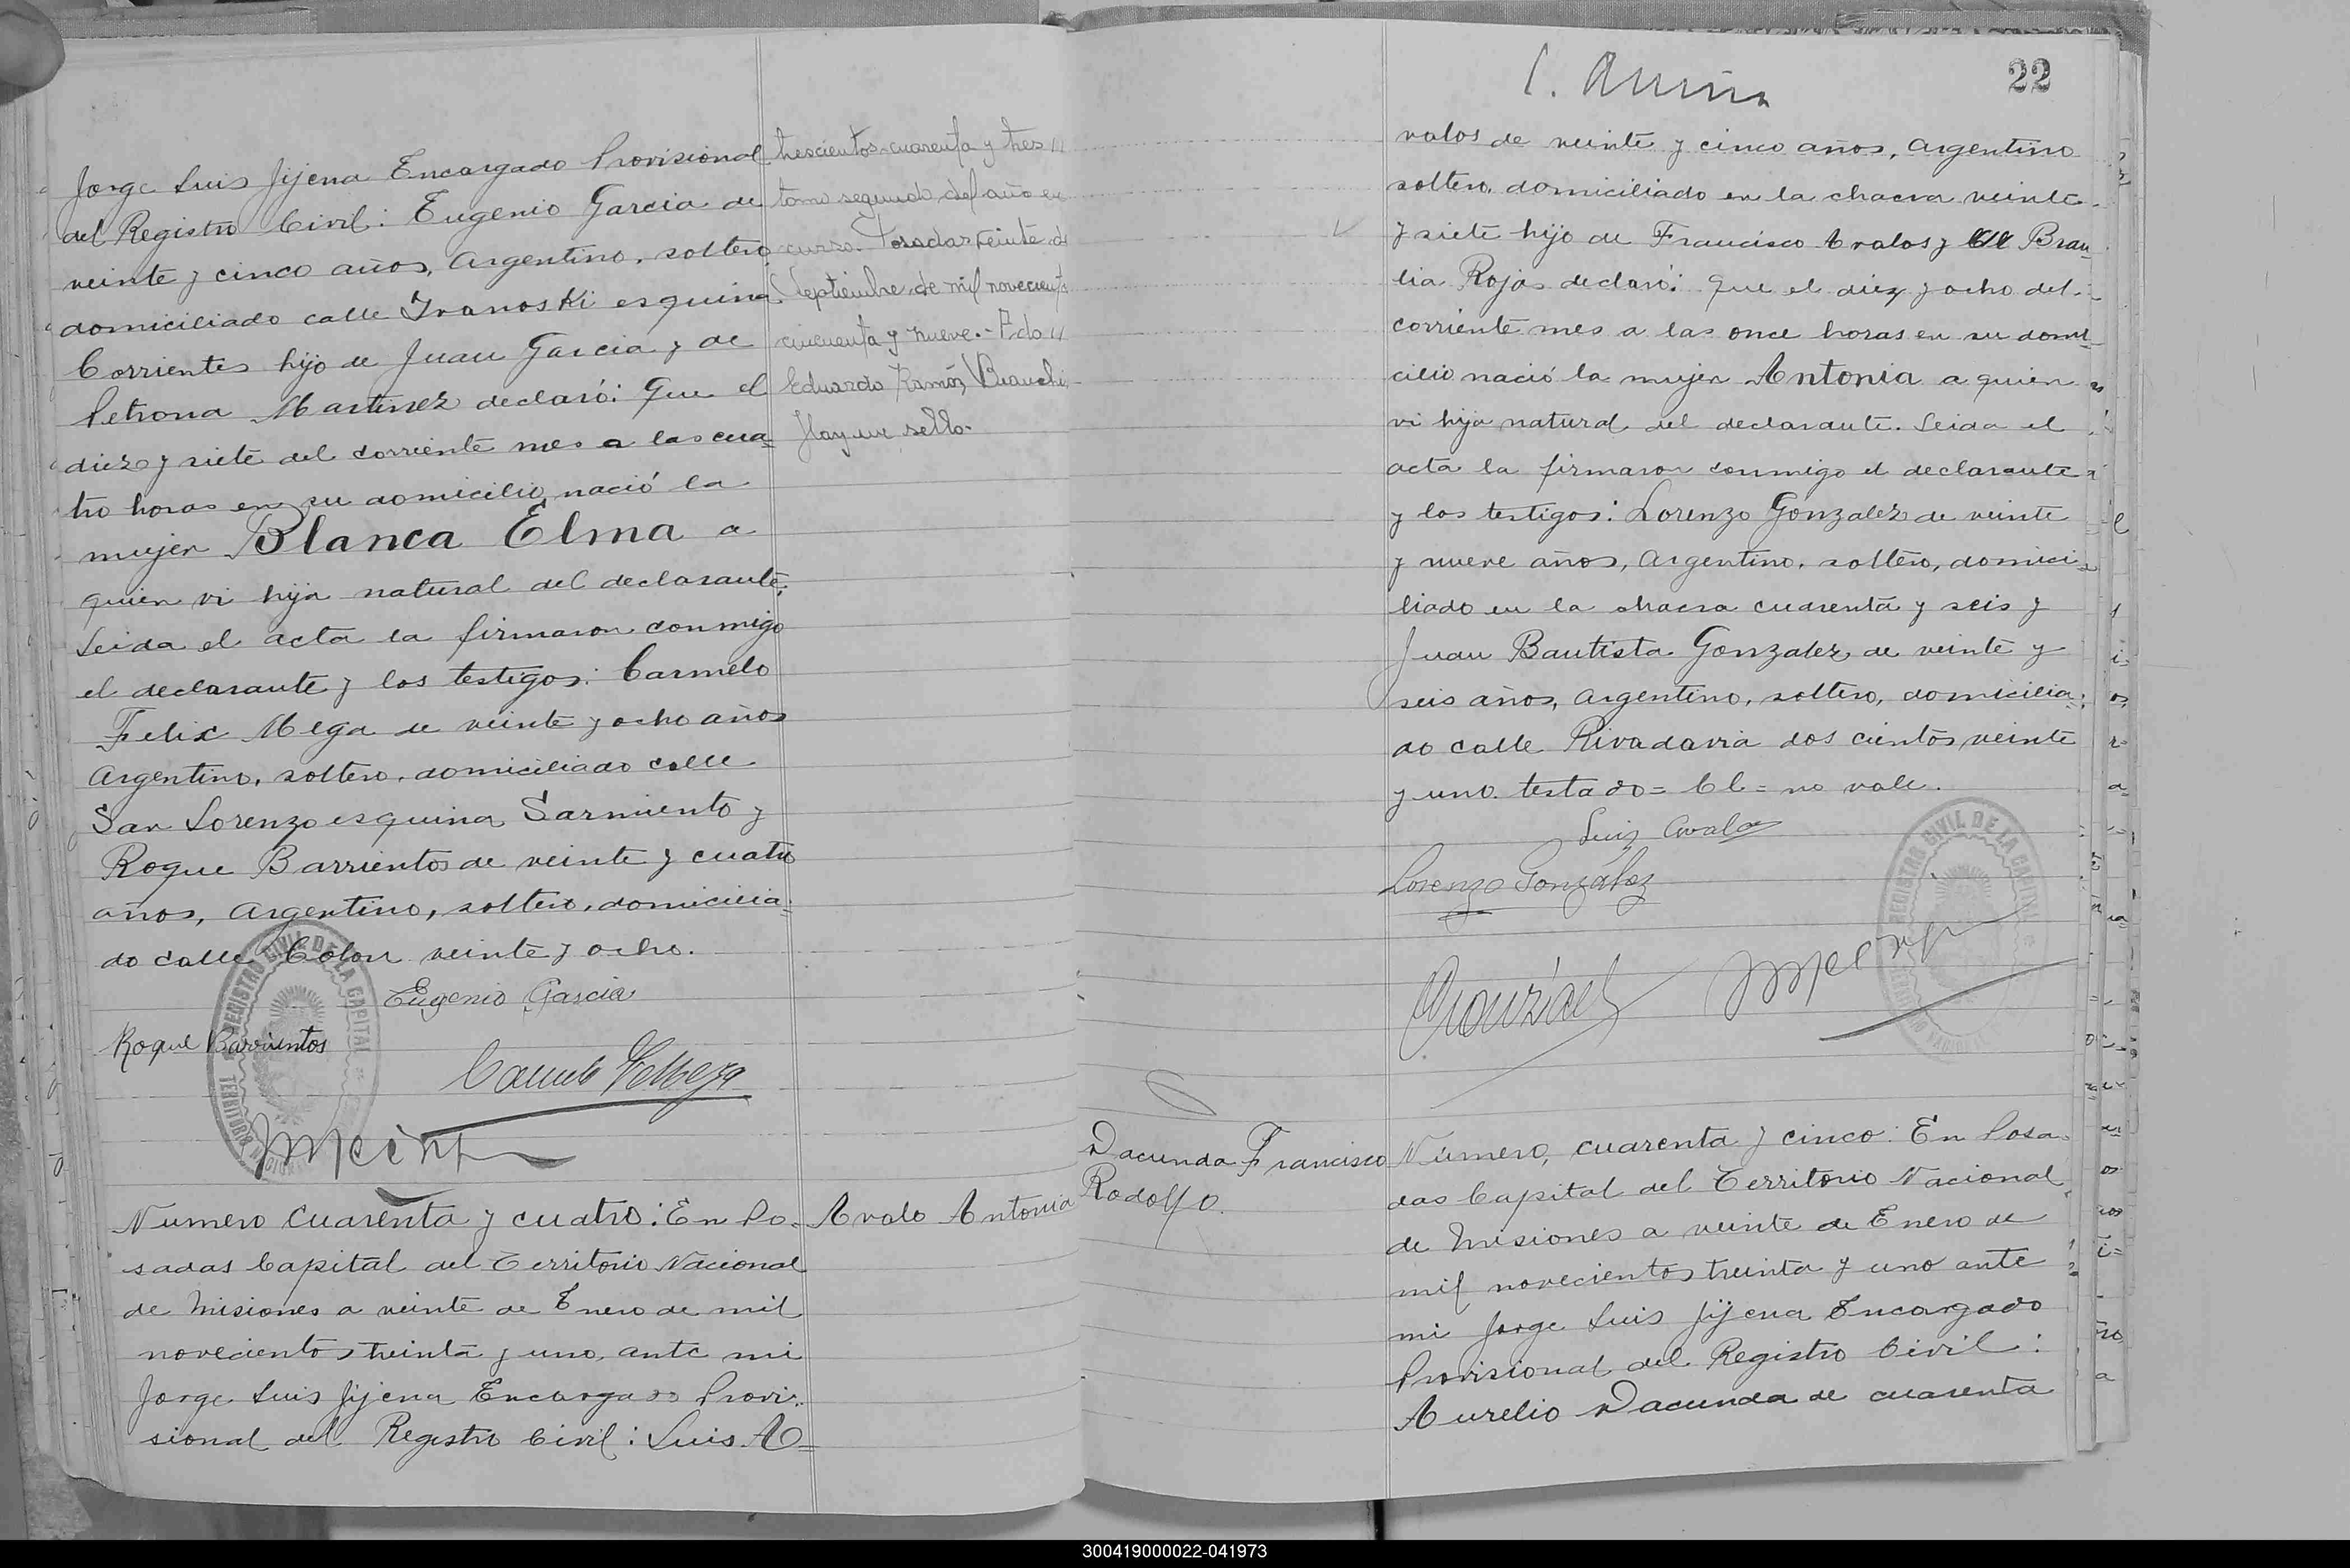 Jorge Luis Jijena Encargado Provisional
del Registro Civil: Eugenio Garcia de
veinte y cinco años, Argentino, soltero,
domiciliado calle Ivanoski esquina
Corrientes hijo de Juan Garcia y de
Petrona Martinez declaró: Que el
diez y siete del corriente mes a las cua=
tro horas en su domicilio nació la
mujer Blanca Elma a
quien vi hija natural del declarante.
Leida el acta la firmaron conmigo
el declarante y los testigos: Carmelo
Felix Mega de veinte y ocho años
Argentino, soltero, domiciliado calle
San Lorenzo esquina Sarmiento y
Roque Barrientos de veinte y cuatro
años, Argentino, soltero, domicilia=
do calle Colon veinte y ocho.
Eugenio Garcia
Roque Barrientos
REGISTRO CIVIL DE LA CAPITAL
TERRITORIO NACIONAL
Numero cuarenta y cuatro: En Po=
sadas Capital del Territorio Nacional
de Misiones a veinte de Enero de mil
novecientos treinta y uno, ante mi
Jorge Luis Jijena Encargado Provi=
sional del Registro Civil: Luis A=
trescientos cuarenta y tres //
tomo segundo del año en
curso. Posadas veinte de
Septiembre de mil novecientos
cincuenta y nueve.- Fdo //
Eduardo Ramón Bianchi.-
Hay un sello.-
Avalo Antonia
22
valos de veinte y cinco años, Argentino
soltero, domiciliado en la chacra veinte
y siete hijo de Francisco Avalos y Brau=
lia Rojas declaró: Que el diez y ocho del
corriente mes a las once horas en su domi=
cilio nació la mujer Antonia a quien
vi hija natural del declarante. Leida el
acta la firmaron conmigo el declarante
y los testigos: Lorenzo Gonzalez de veinte
y nueve años, Argentino, soltero, domici=
liado en la chacra cuarenta y seis y
Juan Bautista Gonzalez de veinte y
seis años, Argentino, soltero, domicilia=
do calle Rivadavia dos cientos veinte
y uno. testado = Cl = no vale.
Luiz Avalos
Lorenzo González
REGISTRO CIVIL DE LA CAPITAL
Dacunda Francisco
Rodolfo.
Número, cuarenta y cinco: En Posa=
das Capital del Territorio Nacional
de Misiones a veinte de Enero de
mil novecientos treinta y uno ante
mi Jorge Luis Jijena Encargado
Provisional del Registro Civil:
Aurelio Dacunda de cuarenta
300419000022-041973